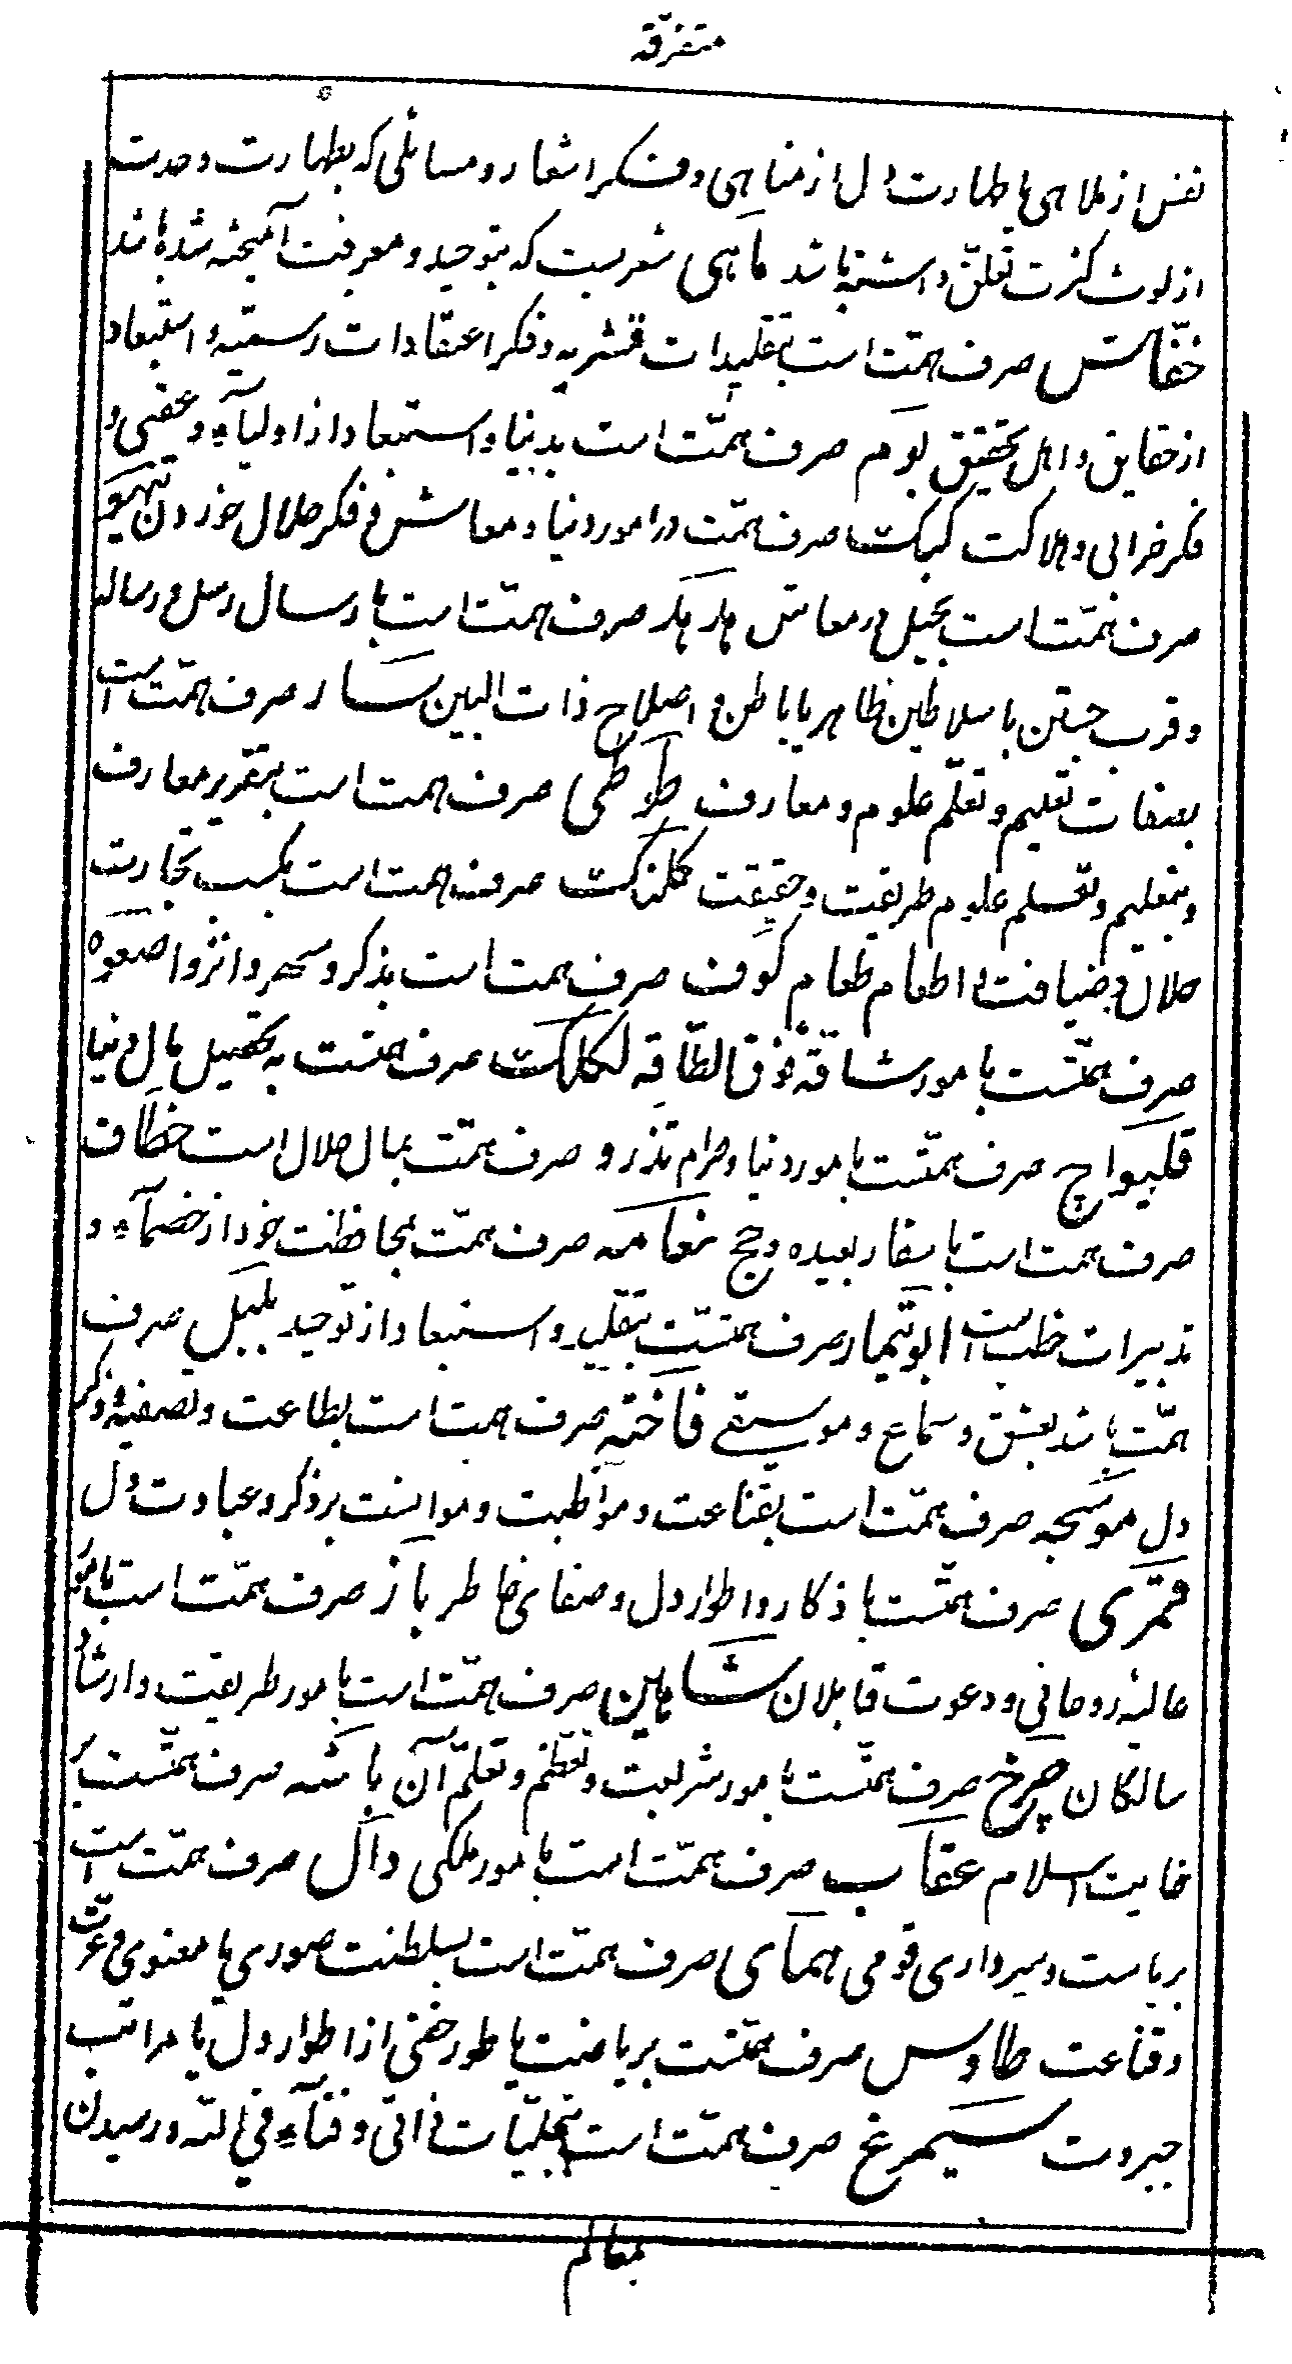 متفرّقه
نفس از ملاهی یا طهارت دل از مناهی و فکر اشعار و مسائلی که بطهارت وحدت
از لوث کثرت تعلّق داشته باشد ماهی شعریست که بتوحید و معرفت آمیخته شده باشد
خفّاش صرف همّت است بتقلیدات قشریه و فکر اعتقادات رسمیّه و استبعاد
از حقایق و اهل تحقیق بوم صرف همّت است بدنیا و استبعاد از اولیآء و عقبی و
فکر خرابی و هلاکت کبک صرف همّت در امور دنیا و معاش و فکر حلال خوردن تیهو
صرف همّت است بحیل در معاش هدهد صرف همّت است بارسال رسل و رساله
و قرب جستن با سلاطین ظاهر یا باطن و اصلاح ذات البین سار صرف همّت است
بصفات تعلیم و تعلّم علوم و معارف طوطی صرف همت است بتقریر معارف
و بتعلیم و تعلم علوم طریقت و حقیقت کلنک صرف همت است بکسب تجارت
حلال و ضیافت و اطعام طعام کوف صرف همت است بذکر و سحر و انزوا صعوه
صرف همّتست بامور شاقّه فوق الطّاقه لکلک صرف همتست به تحصیل مال دنیا
قلیواج صرف همّتست بامور دنیا و حرام تذرو صرف همّت بمال حلال است خطّاف
صرف همت است باسفار بعیده و حج نعامه صرف همّت بمحافظت خود از خصمآء و
تدبیرات خطب است ابوتیمار صرف همتست بتقلید و استبعاد از توحید بلبل صرف
همّت باشد بعشق و سماع و موسیقی فاخته صرف همت است بطاعت و تصفیه و ذکر
دل موسجه صرف همّت است بقناعت و مواظبت و موانست بر ذکر و عبادت دل
قمری صرف همّتست باذکار و اطوار دل و صفای خاطر باز صرف همّت است بامور
عالیه روحانی و دعوت قابلان شاهین صرف همّت است بامور طریقت و ارشاد
سالکان چرغ صرف همّتست بامور شریعت و تعظّم و تعلّم آن باشه صرف همّتست بر
حمایت اسلام عقاب صرف همّت است بامور ملکی دال صرف همّت است
بریاست و سرداری قومی همای صرف همّت است بسلطنت صوری یا معنوی و عزّت
و قناعت طاوس صرف همّتست بریاضت یا طور خفی از اطوار دل یا مراتب
جبروت سیمرغ صرف همّت است بتجلیّات ذاتی و فنآء فی الله و رسیدن
بمعالم